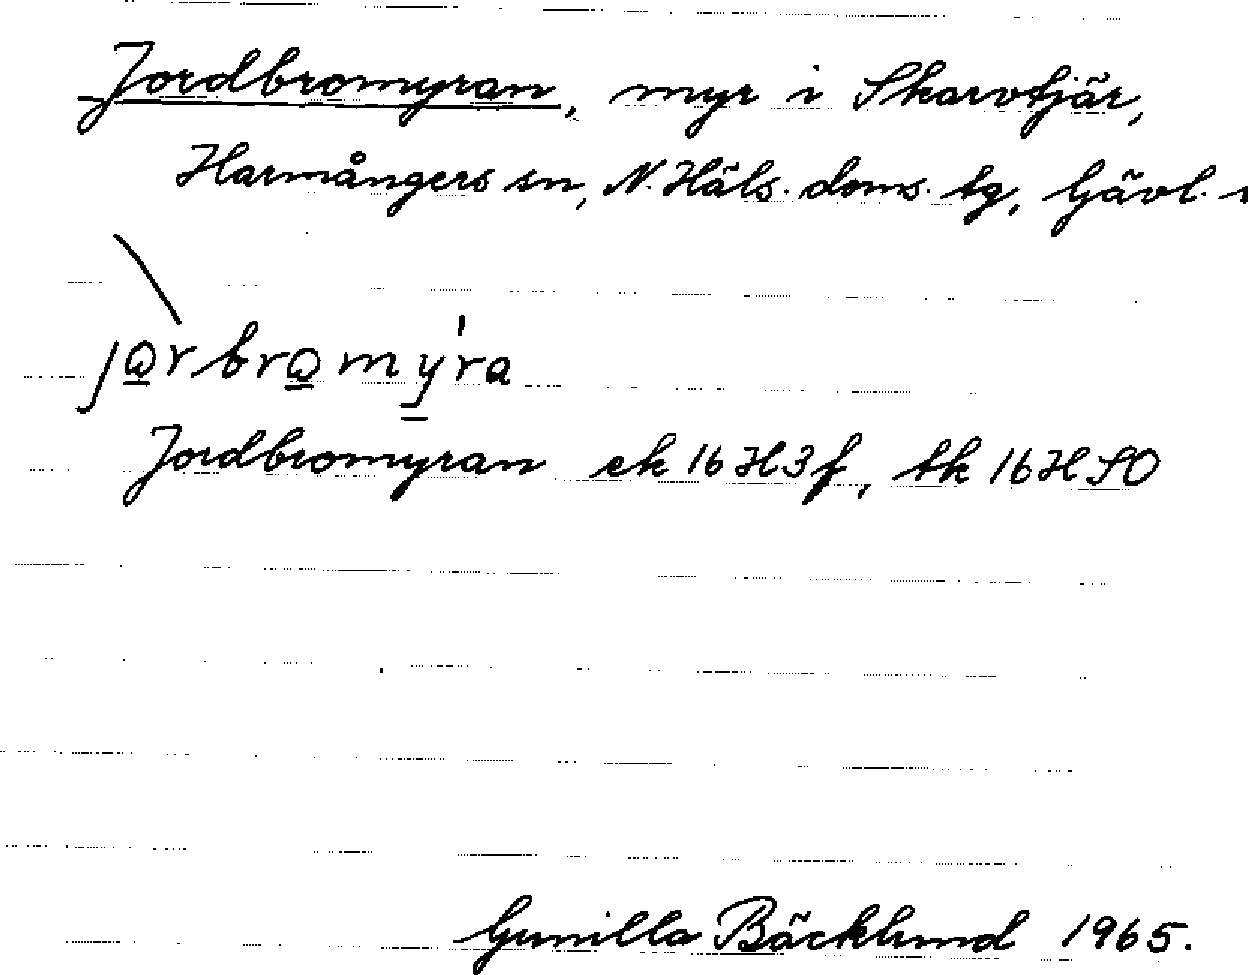 Jordbromyran, myr i Skarvtjär,
Harmångers sn, N. Häls. doms. tg, Gävl.
Jordbromyran ek 16H3f, tk 16H SO
Gunilla Bäcklund 1965.